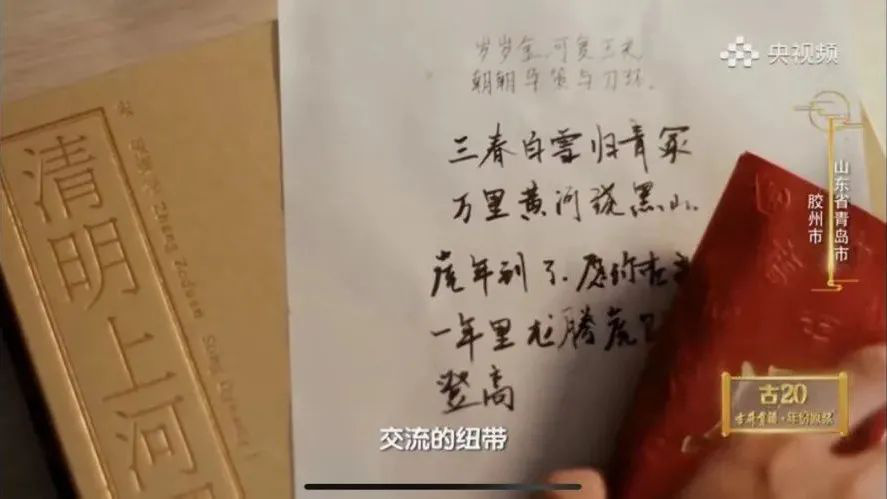 央视频
山东省青岛市
胶州市
岁岁金河复玉关
朝朝马策与刀环。
三春白雪归青冢
万里黄河绕黑山
虎年到了.愿你在
一年里龙腾虎
登高
清明上河
Zhang Zeduan
古20
古井贡酒·年份原浆
交流的纽带